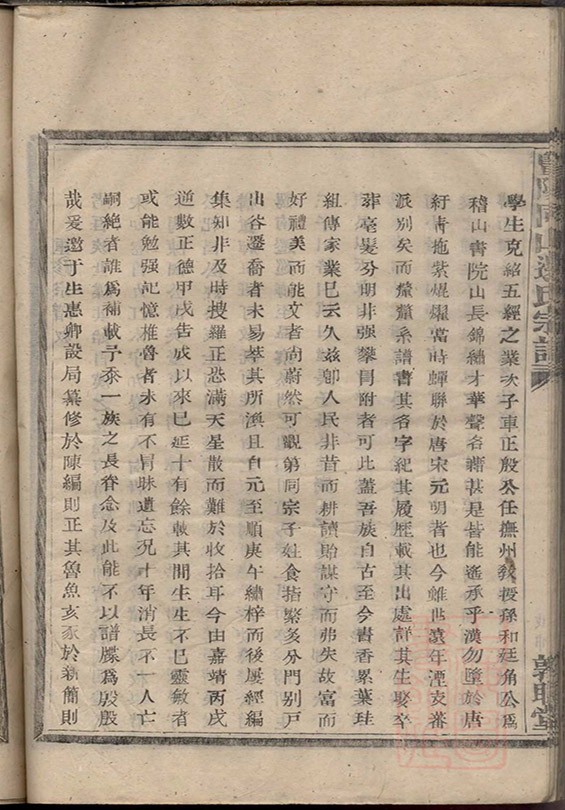 學生克紹五經之業次子車正殷公任撫州教授孫和廷角公爲
稽山書院山長錦繡才華聲名藉甚是皆能遙承乎漢勿墜於唐
紆靑拖紫焜耀當時蟬聯於唐宋元明者也今雖世遠年湮支蕃
派別矣而釐釐系譜書其名字紀其履歷載其出處詳其生娶卒
葬毫髮分明非强攀冐附者可比蓋吾族自古至今書香累葉珪
組傳家業已云久兹卽人民非昔而耕讀貽謀守而弗失故富而
好禮美而能文者尚蔚然可觀第同宗子姓食指繁多分門別戸
出谷遷喬者未易萃其所渙且自元至順庚午繡梓而後屢經編
集知非及時搜羅正恐滿天星散而難於收拾耳今由嘉靖丙戌
逆數正德甲戌告成以來已延十有餘載其間生生不已靈敏者
或能勉强記憶椎魯者未有不冐昧遺忘况十年消長不一人亡
嗣絶者誰爲補載予忝一族之長眷念及此能不以譜牒爲殷殷
哉爰邀于生惠卿設局纂修於陳編則正其魯魚亥豕於新簡則
山邊氏宗譜
敦睦堂